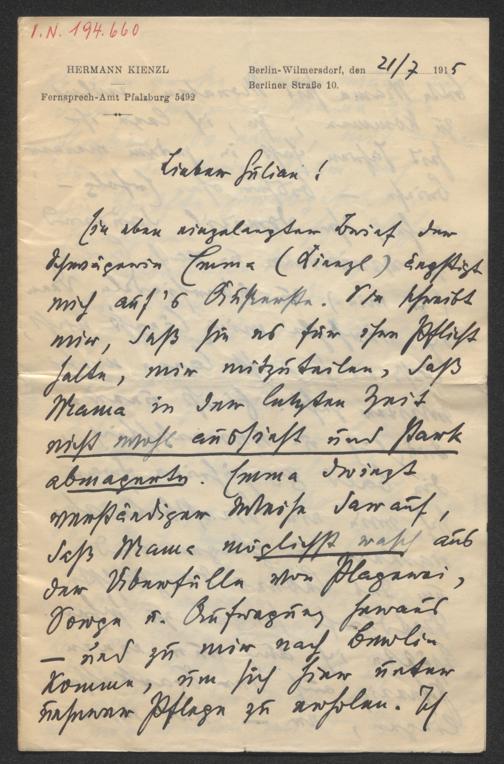 I.N. 194.660
HERMANN KIENZL
Fernsprech-Amt Pfalzburg 5492
Berlin-Wilmersdorf, den 21/7 1915
Berliner Straße 10.
Lieber Julian!
Ein eben eingelangter Brief der
Schwägerin Emma (Kienzl) ängstigt
mich auf's Äußerste. Sie schreibt
mir, daß sie es für ihre Pflicht
halte, mir mitzuteilen, daß
Mama in der letzten Zeit
nicht wohl aussieht und stark
abmagerte. Emma dringt
verständiger Weise darauf,
daß Mama möglichst rasch aus
der Überfülle von Plagerei,
Sorge u. Aufregung heraus
– und zu mir nach Berlin
komme, um sich hier unter
unserer Pflege zu erholen. Ich